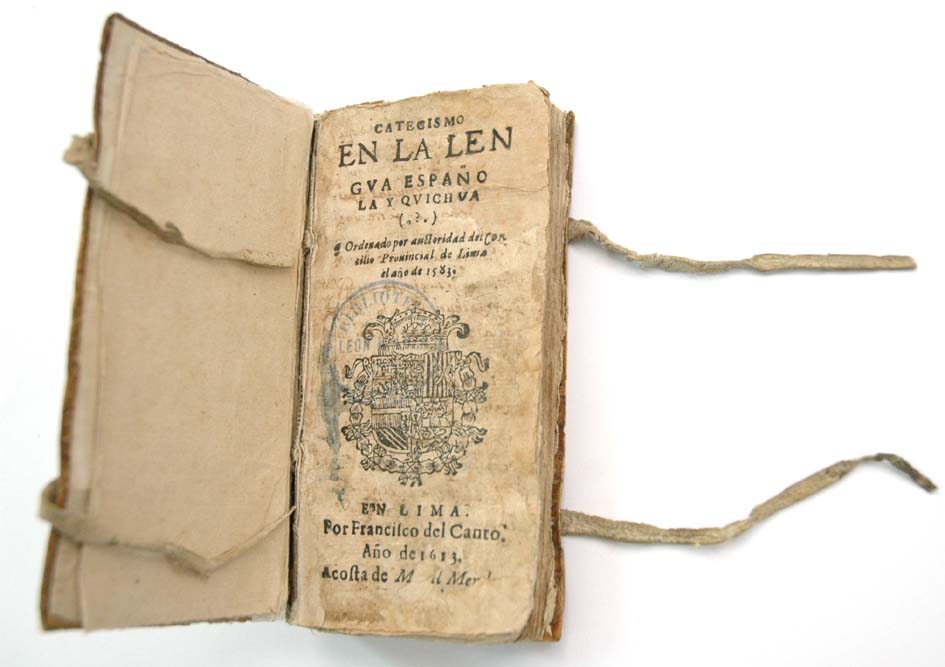 CATECISMO
EN LA LEN
GVA ESPAÑO
LA Y QVICHVA
(.?.)
¶ Ordenado por auctoridad del Con
cilio Prouincial de Lima
el año de 1583.
BIBLIOTE
LEON
EN LIMA.
Por Franciſco del Canto.
Año de 1613.
Acoſta de